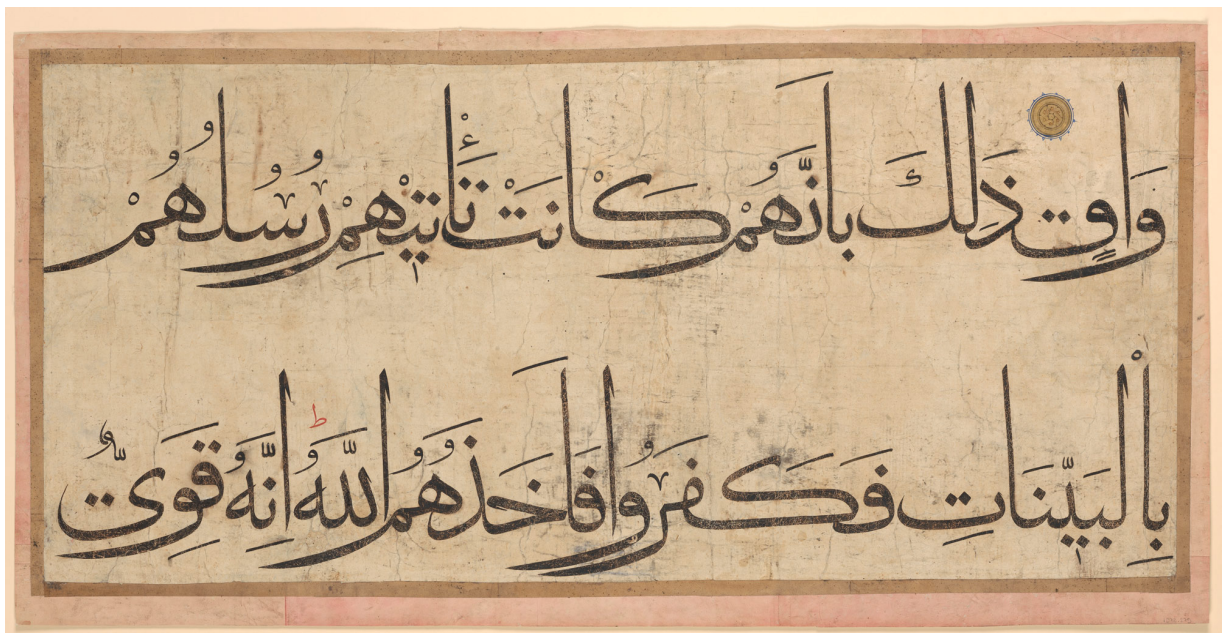 وَاقٍ ذَلِكَ بِاَنَّهُمْ كَانَتْ تَأْتِيهِمْ رُسُلُهُمْ
بِالْبَيِّنَاتِ فَكَفَرُوا فَاَخَذَهُمُ اللَّهُ اِنَّهُ قَوِىٌّ